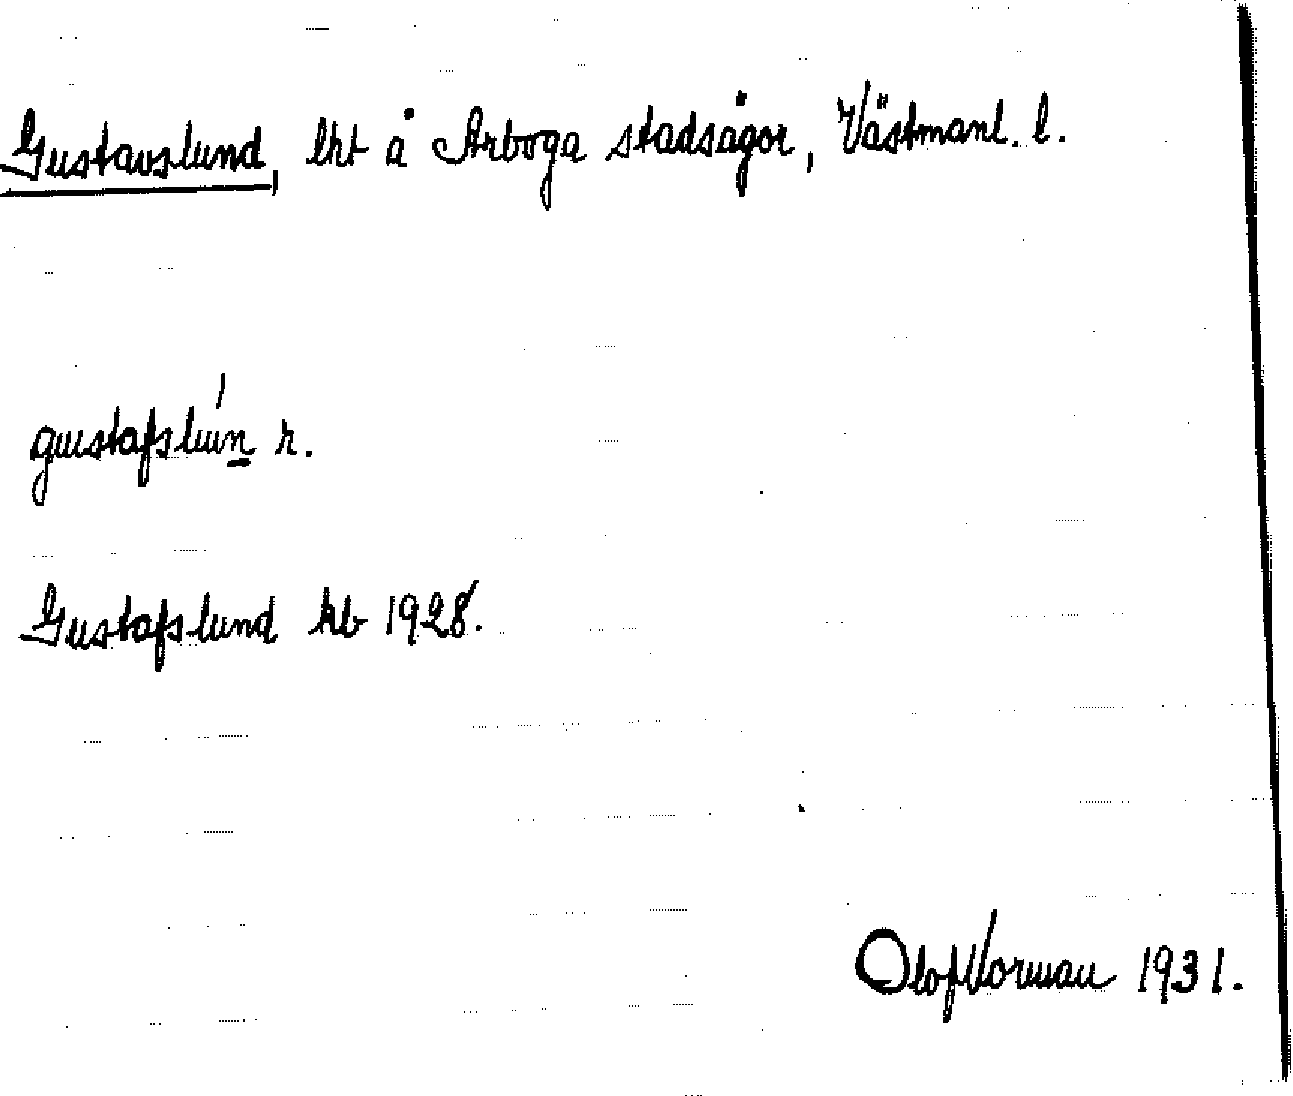 Gustavslund, lht å Arboga stadsägor, Västmanl. l.
gustafslún r.
Gustafslund kb 1928.
Olof Norman 1931.